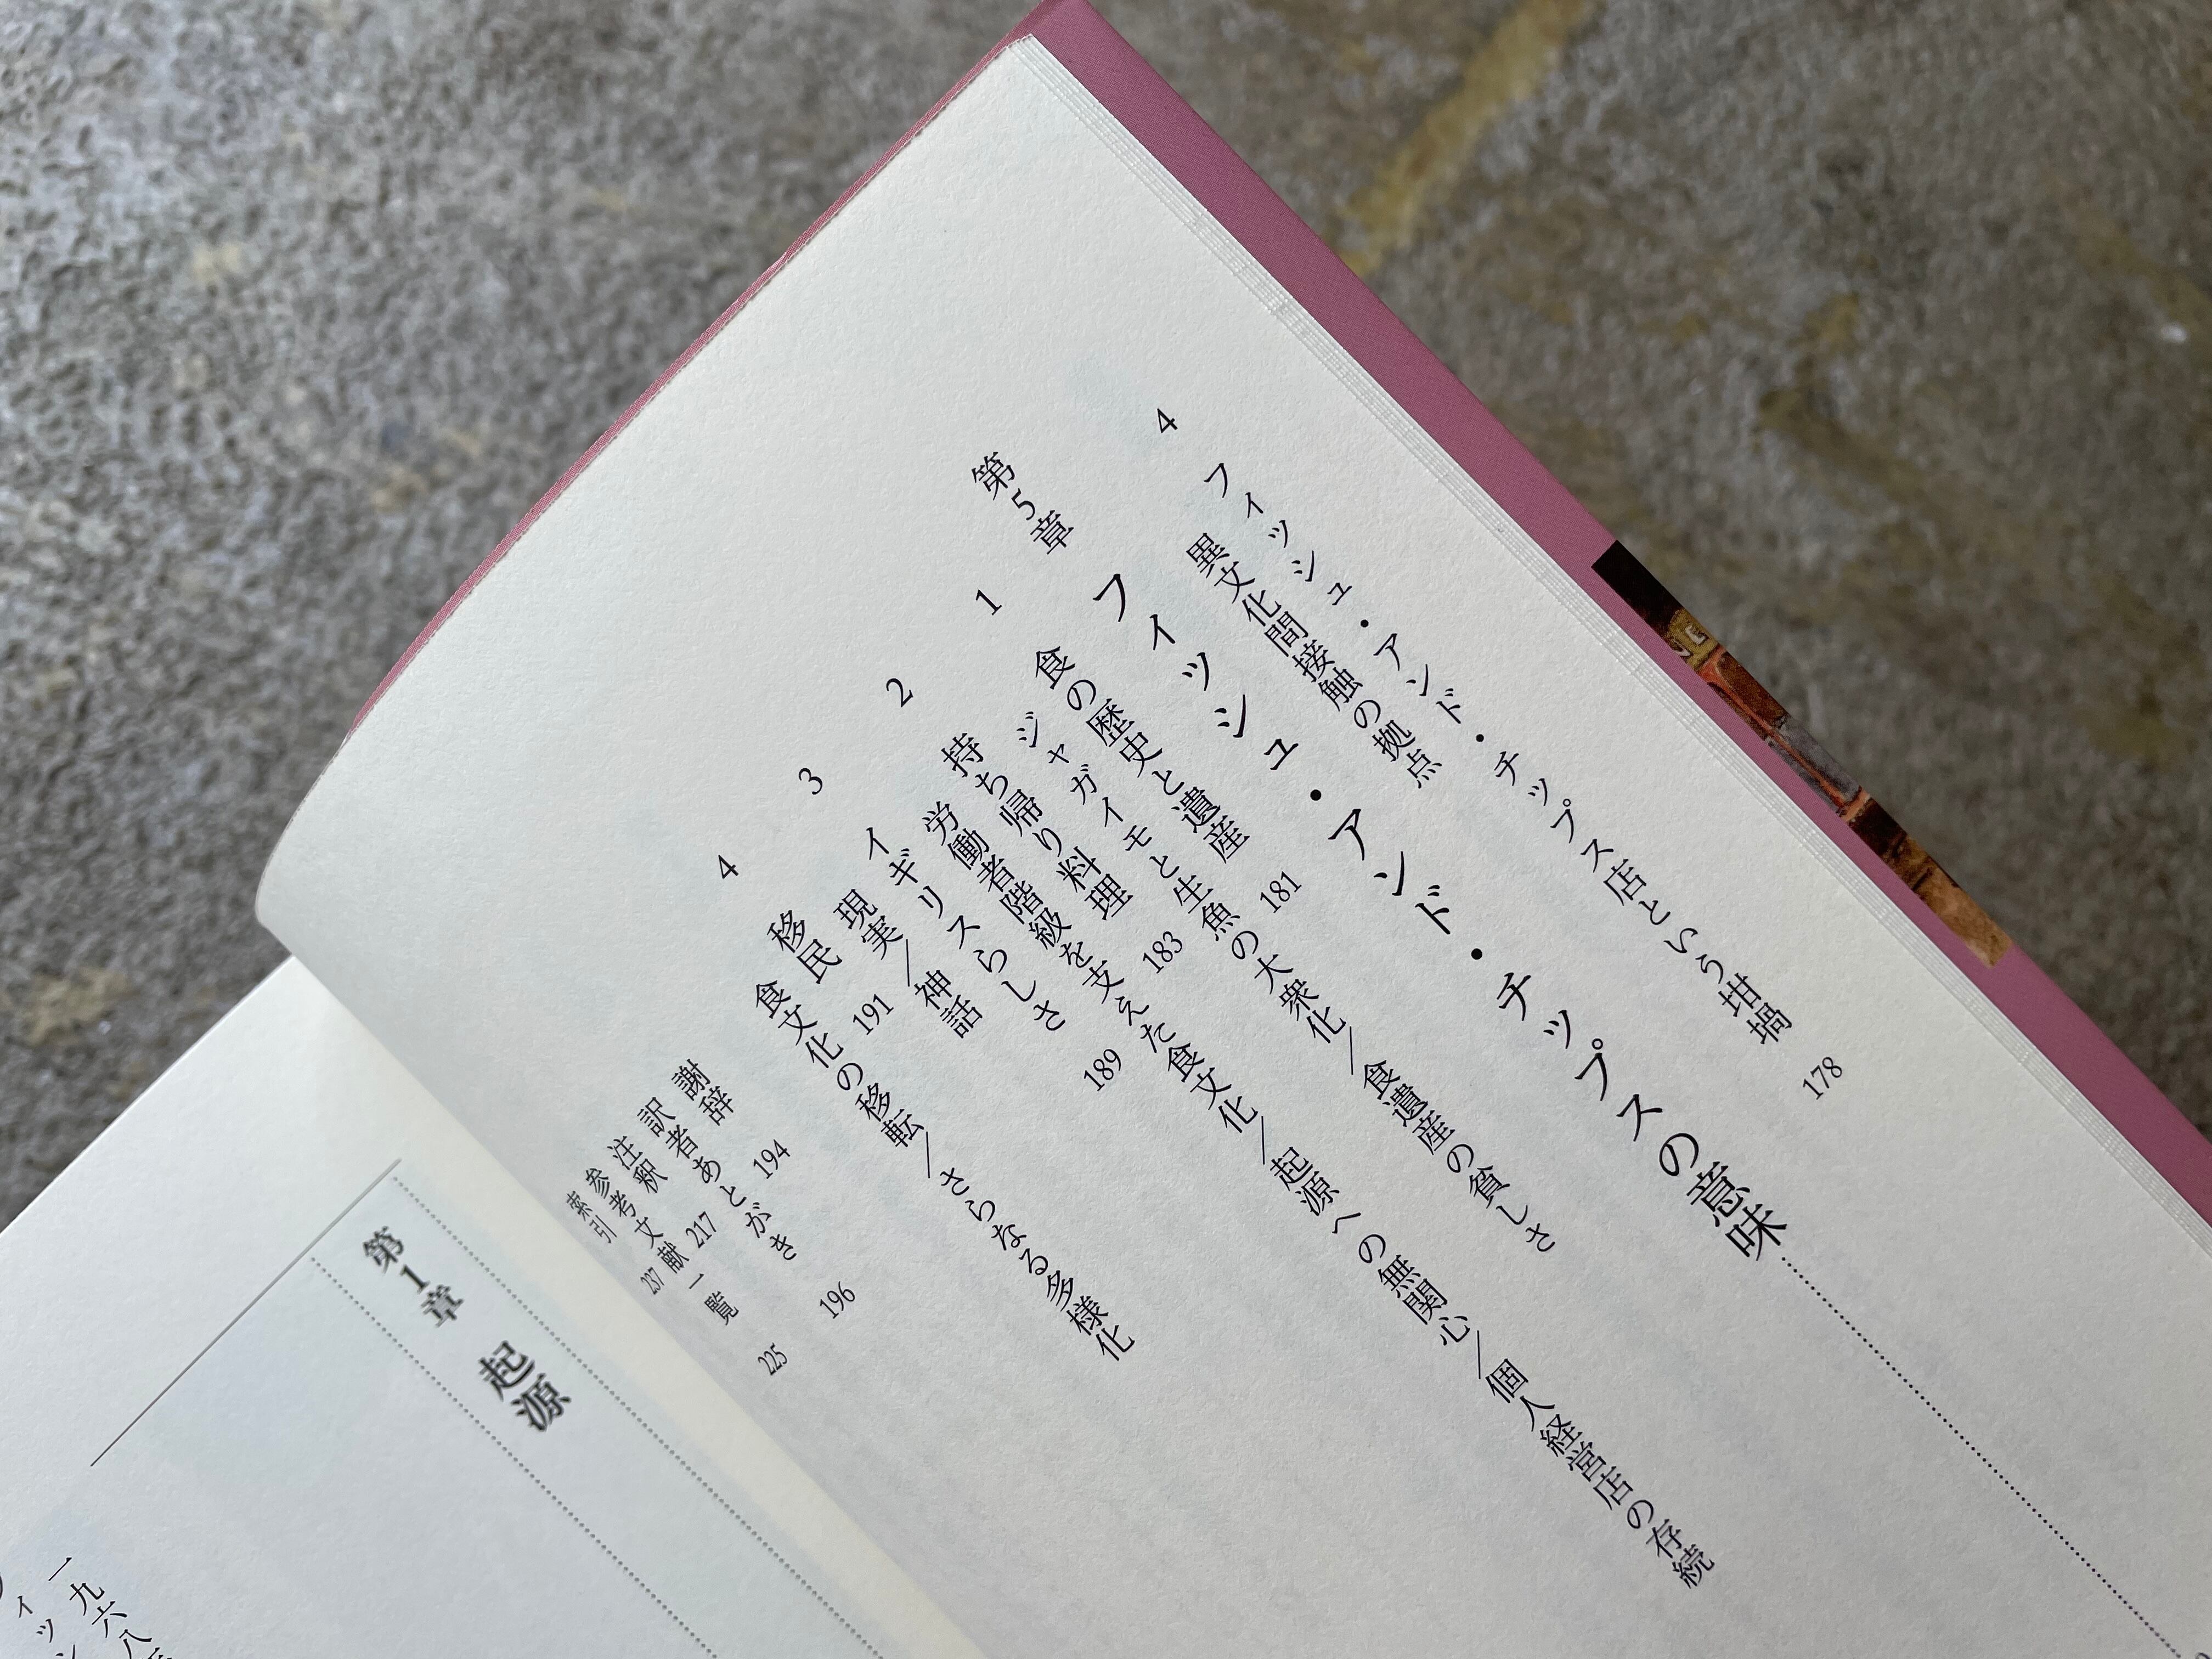 4 フィッシュ・アンド・チップス店という坩堝 178
異文化間接触の拠点
第5章 フィッシュ・アンド・チップスの意味
1 食の歴史と遺産 181
ジャガイモと生魚の大衆化／食遺産の貧しさ
2 持ち帰り料理 183
労働者階級を支えた食文化／起源への無関心／個人経営店の存続
3 イギリスらしさ 189
現実／神話
4 移民 191
食文化の移転／さらなる多様化
謝辞 194
訳者あとがき 196
注釈 217
参考文献一覧 225
索引 237
第1章 起源
一九六八
ィッシ